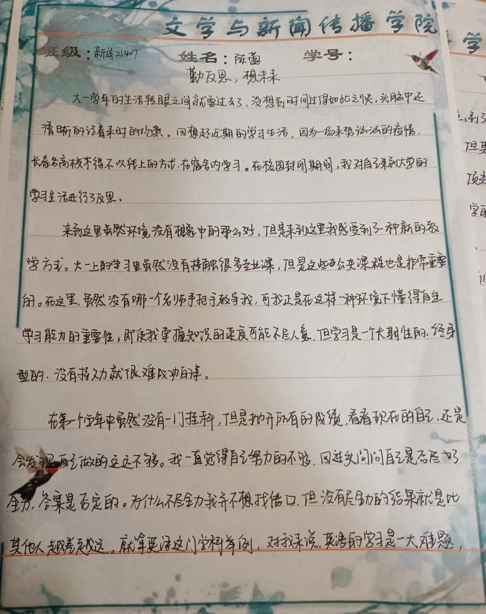 文学与新闻传播学院
班级：新传21407 姓名：陈菡 学号：
勤反思，想未来
大一学年的生活转眼之间就要过去了，没想到时间过得如此之快，头脑中还
清晰的记着来时的场景。回想起近期的学习生活，因为一场来势汹汹的疫情，
长春各高校不得不以线上的方式，在宿舍内学习。在校园封闭期间，我对自己来到大学的
学习生活进行了反思。
来到这里虽然环境没有想象中的那么好，但是来到这里我感受到了一种新的教
学方式。大一上的学习里虽然没有接触很多专业课，但是这些公共课程也是非常重要
的。在这里，虽然没有哪一个老师手把手教导我，可我正是在这样一种环境下懂得自主
学习能力的重要性，即使我掌握知识的速度可能不尽人意，但学习是一个长期性的，经
型的，没有投入就很难成功的事。
在第一个学年中虽然没有一门挂科，但是抛开所有的成绩，看看现在的自己，还是
会发现自己做的远远不够。我一直觉得自己努力的不够，回过头问问自己是否尽了
全力，答案是否定的。为什么不尽全力我并不想找借口，但没有尽全力的结果就是比
其他人越差越远。就拿英语这门学科举例，对我来说，英语的学习是一大难题，